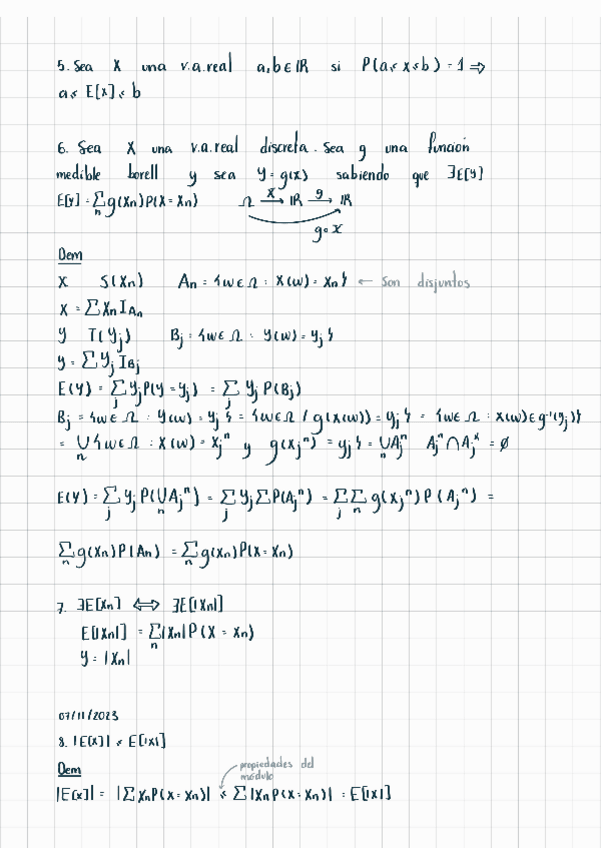 5. Sea X una v.a.real a,b ∈ IR si P(a ≤ x ≤ b) = 1 ⇒
a ≤ E[x] ≤ b
6. Sea X una v.a.real discreta. Sea g una función
medible borell y sea y = g(x) sabiendo que ∃E[y]
E[y] = ∑ₙ g(Xn) P(X = Xn) Ω →X IR →g IR
g∘X
Dem
X S(Xn) An = {w ∈ Ω : X(w) = Xn} ← Son disjuntos
X = ∑ Xn I_An
Y T(Yj) Bj = {w ∈ Ω : Y(w) = yj}
y = ∑ Yj I_Bj
E(Y) = ∑ⱼ Yj P(Y = yj) = ∑ⱼ Yj P(Bj)
Bj = {w ∈ Ω : Y(w) = yj} = {w ∈ Ω / g(X(w)) = yj} = {w ∈ Ω : X(w) ∈ g⁻¹(yj)}
= ⋃ₙ {w ∈ Ω : X(w) = Xjⁿ y g(Xjⁿ) = yj} = ⋃ₙ Ajⁿ Ajⁿ ∩ Ajᵏ = ∅
E(Y) = ∑ⱼ Yj P(⋃ₙ Ajⁿ) = ∑ⱼ Yj ∑ P(Ajⁿ) = ∑ⱼ ∑ₙ g(Xjⁿ) P(Ajⁿ) =
∑ₙ g(Xn) P(An) = ∑ₙ g(Xn) P(X = Xn)
7. ∃E[Xn] ⟺ ∃E[|Xn|]
E[|Xn|] = ∑ₙ |Xn| P(X = Xn)
y = |Xn|
07/11/2023
8. |E[X]| ≤ E[|X|]
propiedades del
módulo
Dem
|E[x]| = |∑ Xn P(X = Xn)| ≤ ∑ |Xn P(X = Xn)| = E[|X|]